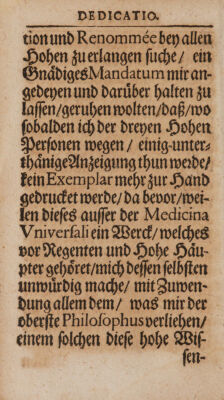 DEDICATIO.
tion und Renommée bey allen
Hohen zu erlangen suche/ ein
Gnädiges Mandatum mir an-
gedeyen und darüber halten zu
lassen/ geruhen wolten/ daß/ wo
sobalden ich der dreyen Hohen
Personen wegen/ einig-unter-
thänige Anzeigung thun werde/
kein Exemplar mehr zur Hand
gedrucket werde/ da bevor/ wei-
len dieses ausser der Medicina
Vniversali ein Werck/ welches
vor Regenten und Hohe Häu-
pter gehöret/ mich dessen selbsten
unwürdig mache/ mit Zuwen-
dung allem dem/ was mir der
oberste Philosophus verliehen/
einem solchen diese hohe Wis-
sen-